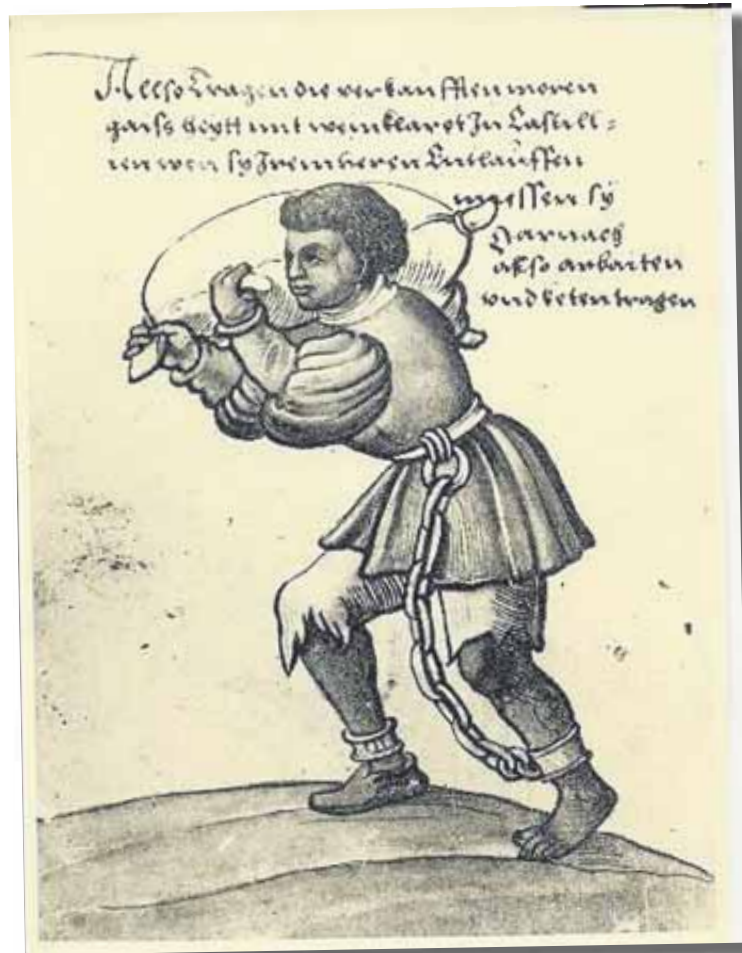 Allso tragen die verkaufften moren
gaiss heytt mit wein klaret In Castill=
ien wen sy Irem heren Entlauffen
miessen sy
darnach
also arbaiten
und keten tragen